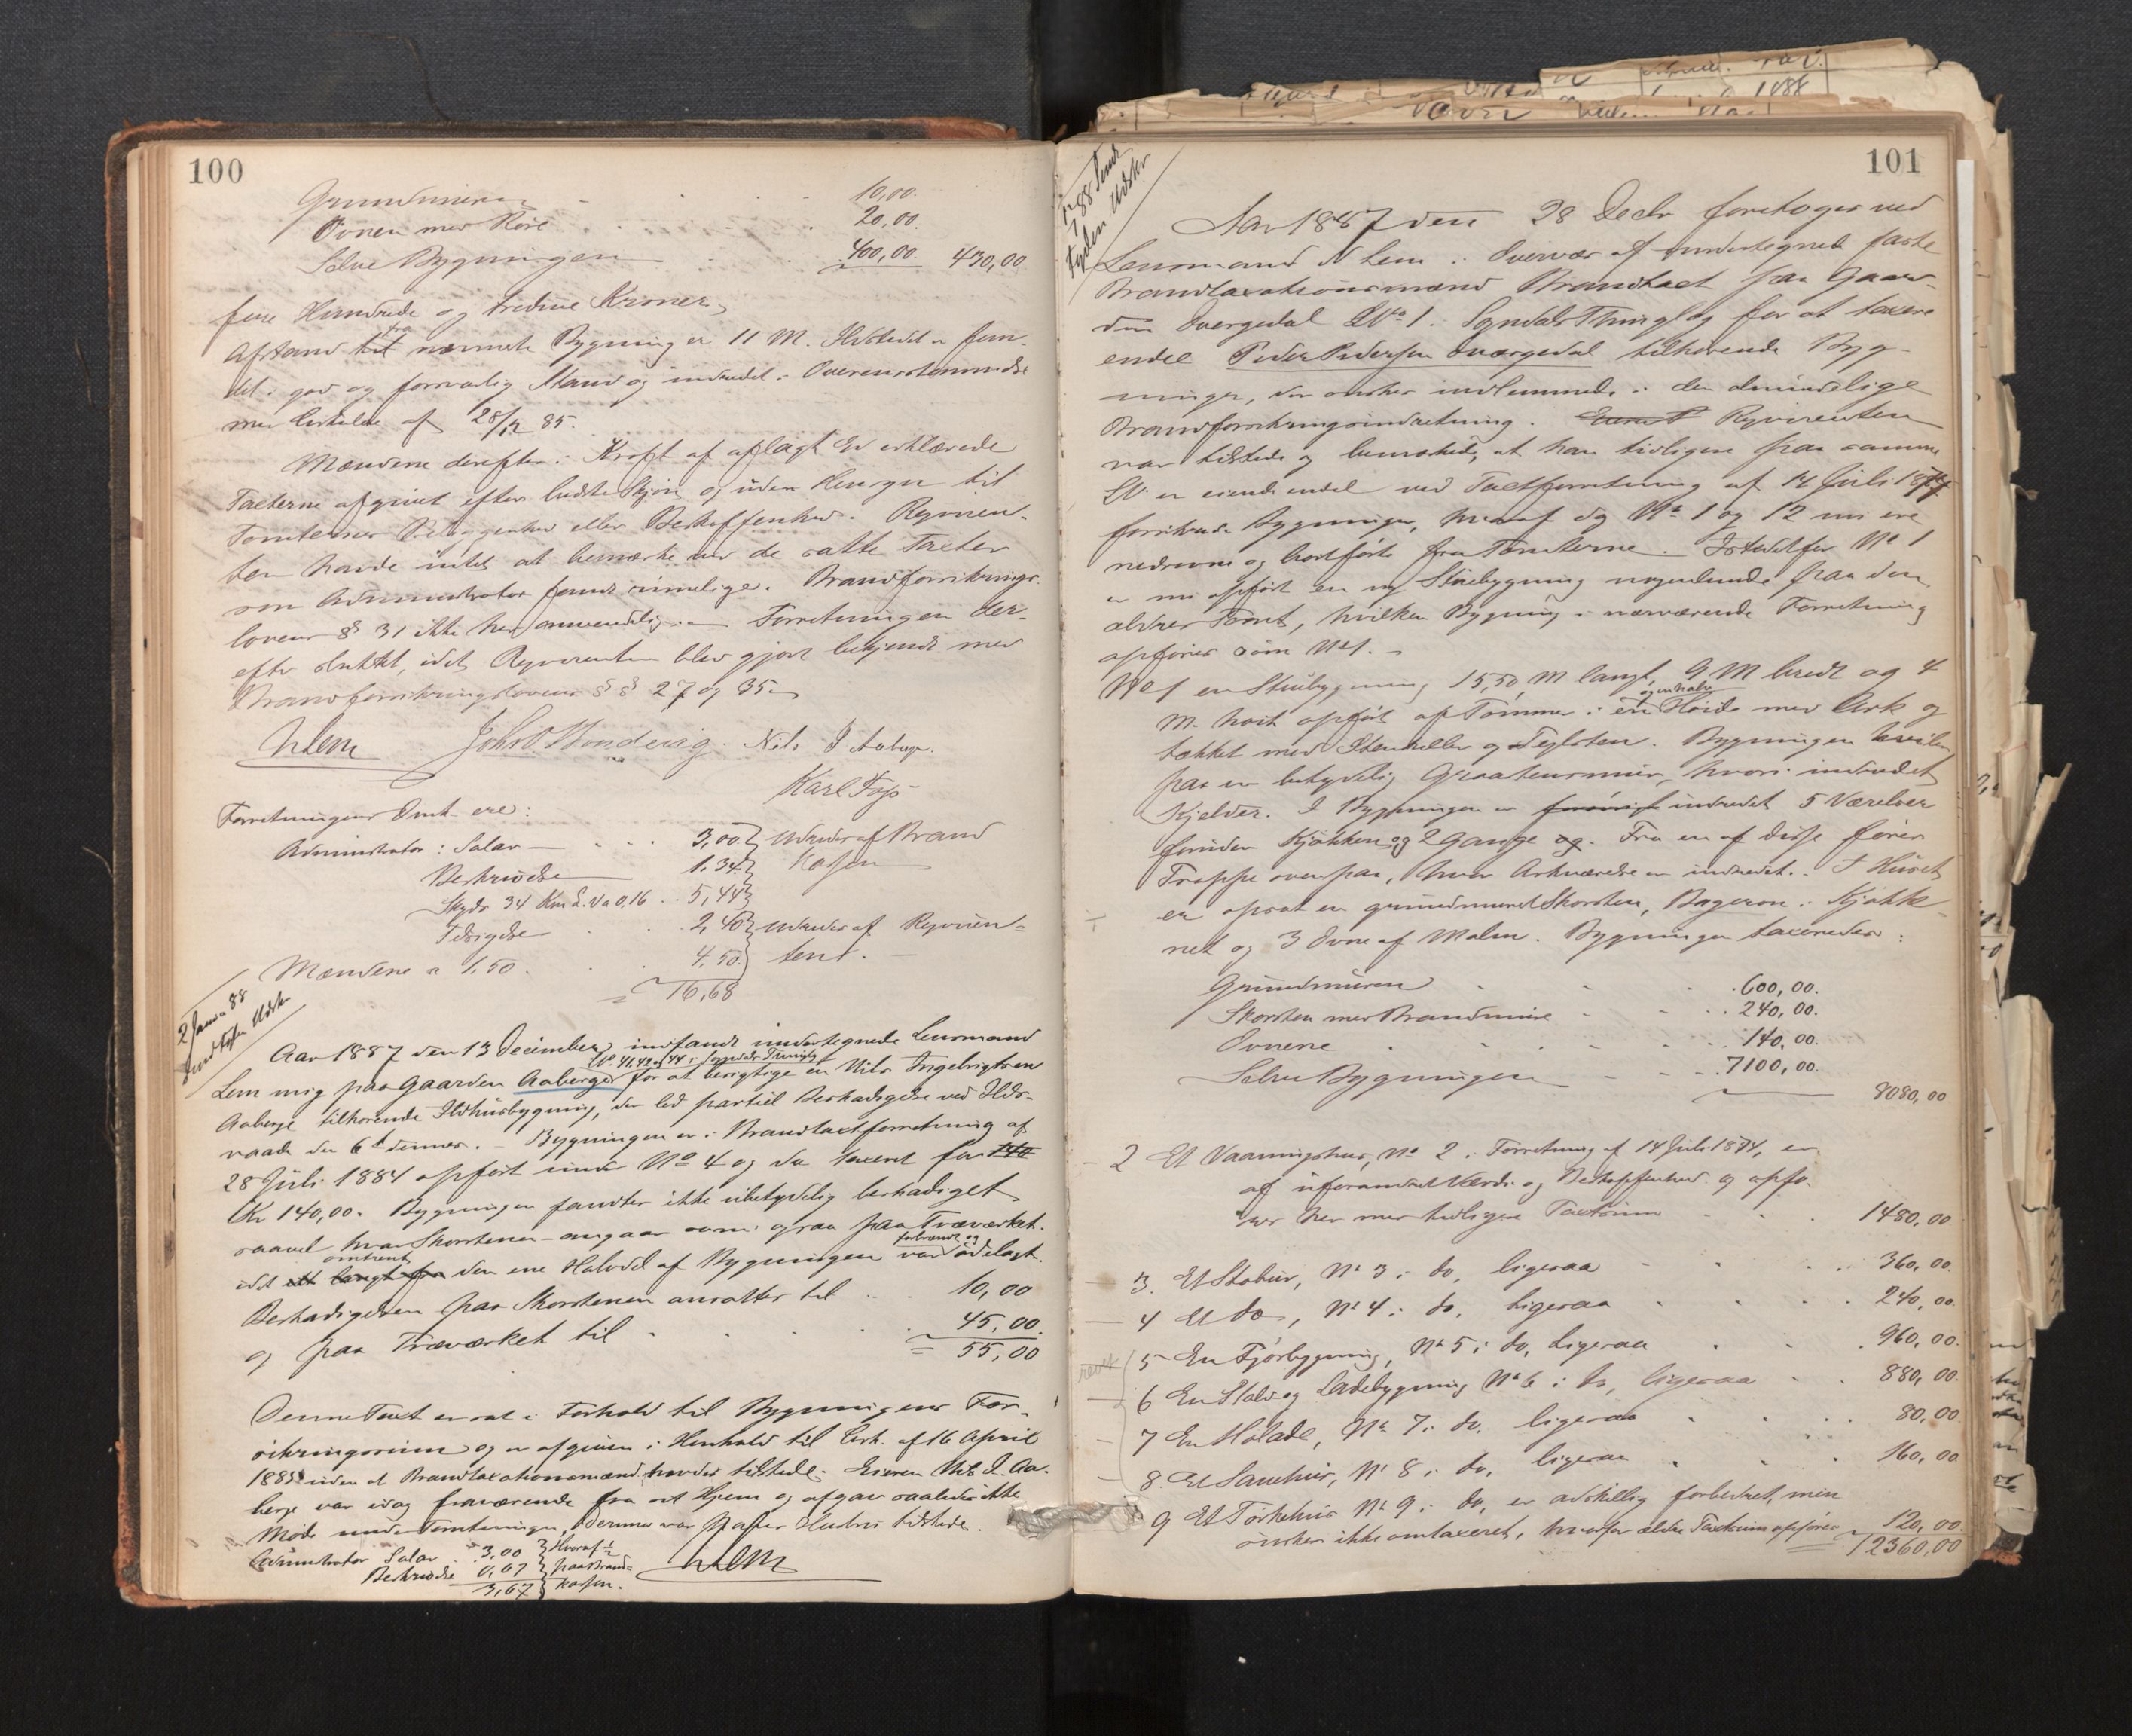 100
Grundmuren 10,00.
Ovnen med Rör 20,00.
Selve Bygningen 400,00. 430,00
fire Hundrede og tredive Kroner,
Afstand til fra nærmeste Bygning er 11 M. Ildstedet er fun-
det i god og forsvarlig Stand og indredet i Overensstemmelse
med Cirkulære af 28/12 85.
Mændene derefter i Kraft af aflagt Ed erklærede
Taxterne afgivet efter bedste Skjön og uden Hensyn til
Tomternes Beliggenhed eller Beskaffenhed. Rqviren-
ten havde intet at bemærke ved de satte Taxter
som Administrator fandt rimelige. Brandforsikrings-
lovens § 31 ikke her anvendelig. Forretningen der-
efter sluttet, idet Reqvirenten blev gjort bekjendt med
Brandforsikringslovens §§ 27 og 35.
N Lem Nils I Aaberge.
Karl Foss
Forretningens Omk. ere:
Administrator: Salar 3,00 udredes af Brand
Beskrivelse 1.34 Kassen
Skyds 34 Km à 0,16 5,44
2,40 udredes af Reqviren-
Mændene a 1,50. 4,50. ten.
= 16,68
2 Januar 88
Aar 1887 den 13 December indfandt undertegnede Lensmand
LNo 41,42 og 44 i Sogndals Thinglag
Lem mig paa Gaarden Aaberge for at besigtige en Nils Ingebrigtsen
Aaberge tilhörende Ildhusbygning, der led partiel Beskadigelse ved Ilds-
vaade den 6te dennes. Bygningen er i Brandtaxtforretning af
28 Juli 1884 opfört under No 4 og da taxeret for 140
Kr 140,00. Bygningen fandtes ikke ubetydelig beskadiget
saavel hvad Skorstenen angaar som ogsaa paa Træværket.
omtrent forbrændt og
idet den ene Halvdel af Bygningen var ödelagt.
Beskadigelsen paa Skorstenen ansattes til 10,00
og paa Træværket til 45,00.
= 55,00
Denne Taxt er sat i Forhold til Bygningens For-
sikringssum og er afgiven i Henhold til Cirk. af 16 April
1885 uden at Brandtaxationsmænd havdes tilstede. Eieren Nils I. Aa-
berge var idag fraværende fra sit Hjem og afgav saaledes ikke
Möde under Forretningen, derimod var tilstede.
Administrator Salar 3,00 Hvoraf 1/2
Beskrivelse 0,67 paa Brand-
3,67 kassen.
N Lem
101
Aar 1887 den 28 Decbr foretoges ved
Lensmand N Lem i Overvær af undertegnede faste
Brandtaxationsmænd Brandtaxt paa Gaar-
den Qvergedal LNo 1 i Sogndals Thinglag for at taxere
endel Peder Pedersen Qvergedal tilhörende Byg-
ninger, der önskes indlemmede i den almindelige
Brandforsikringsindretning. Reqvirenten
var tilstede og bemærkede, at han tidligere paa samme
LN er eiende endel ved Taxtforretning af 14 Juli 1874
forsikrede Bygninger, hvoraf dog No 1 og 12 nu ere
nedrevne og bortförte fra Tomterne. Istedetfor No 1
er nu opfört en ny Stuebygning nogenlunde paa den
ældres Tomt, hvilken Bygning i nærværende Forretning
opföres som No 1.
No 1 en Stuebygning 15,50 M langt, 9 M bredt og 4
og en halv
M. höit opfört af Tömmer i en Höide med Ark og
tækket med Stenheller og Teglsten. Bygningen hviler
paa en betydelig Graastensmur, hvori indredet
Kjelder. I Bygningen er indredet 5 Værelser
foruden Kjökken og 2 Gange og. Fra en af disse förer
Trappe ovenpaa, hvor Arkværelse er indredet. I Huset
er opsat en grundmuret Skorsten, Bagerovn i Kjökke-
net og 3 Ovne af Malm. Bygningen taxeredes:
Grundmuren 600,00.
Skorsten med Brandmure 240,00.
Ovnene 140,00.
Selve Bygningen 7100,00.
8080,00
2 Et Vaaningshus, No 2 i Forretning af 14 Juli 1874, er
af uforandret Værdi og Beskaffenhed og opfö-
res her med tidligere Taxtsum 1480,00
3. Et Stabur, No 3 i do, ligesaa 360,00.
4 Et do, No 4 i do, ligesaa 240,00.
5 En Fjösbygning, No 5 i do, ligesaa 960,00.
6 En Stald og Ladebygning No 6 i do, ligesaa 880,00.
7 En Hölade, No 7 i do, ligesaa 80,00.
8. Et Sauehus, No 8 i do, ligesaa 160,00
9 Et Törkehus No 9 i do, er adskillig forbedret, men
önskes ikke omtaxeret, hvorfor ældre Taxtsum opföres 120,00.
12360,00